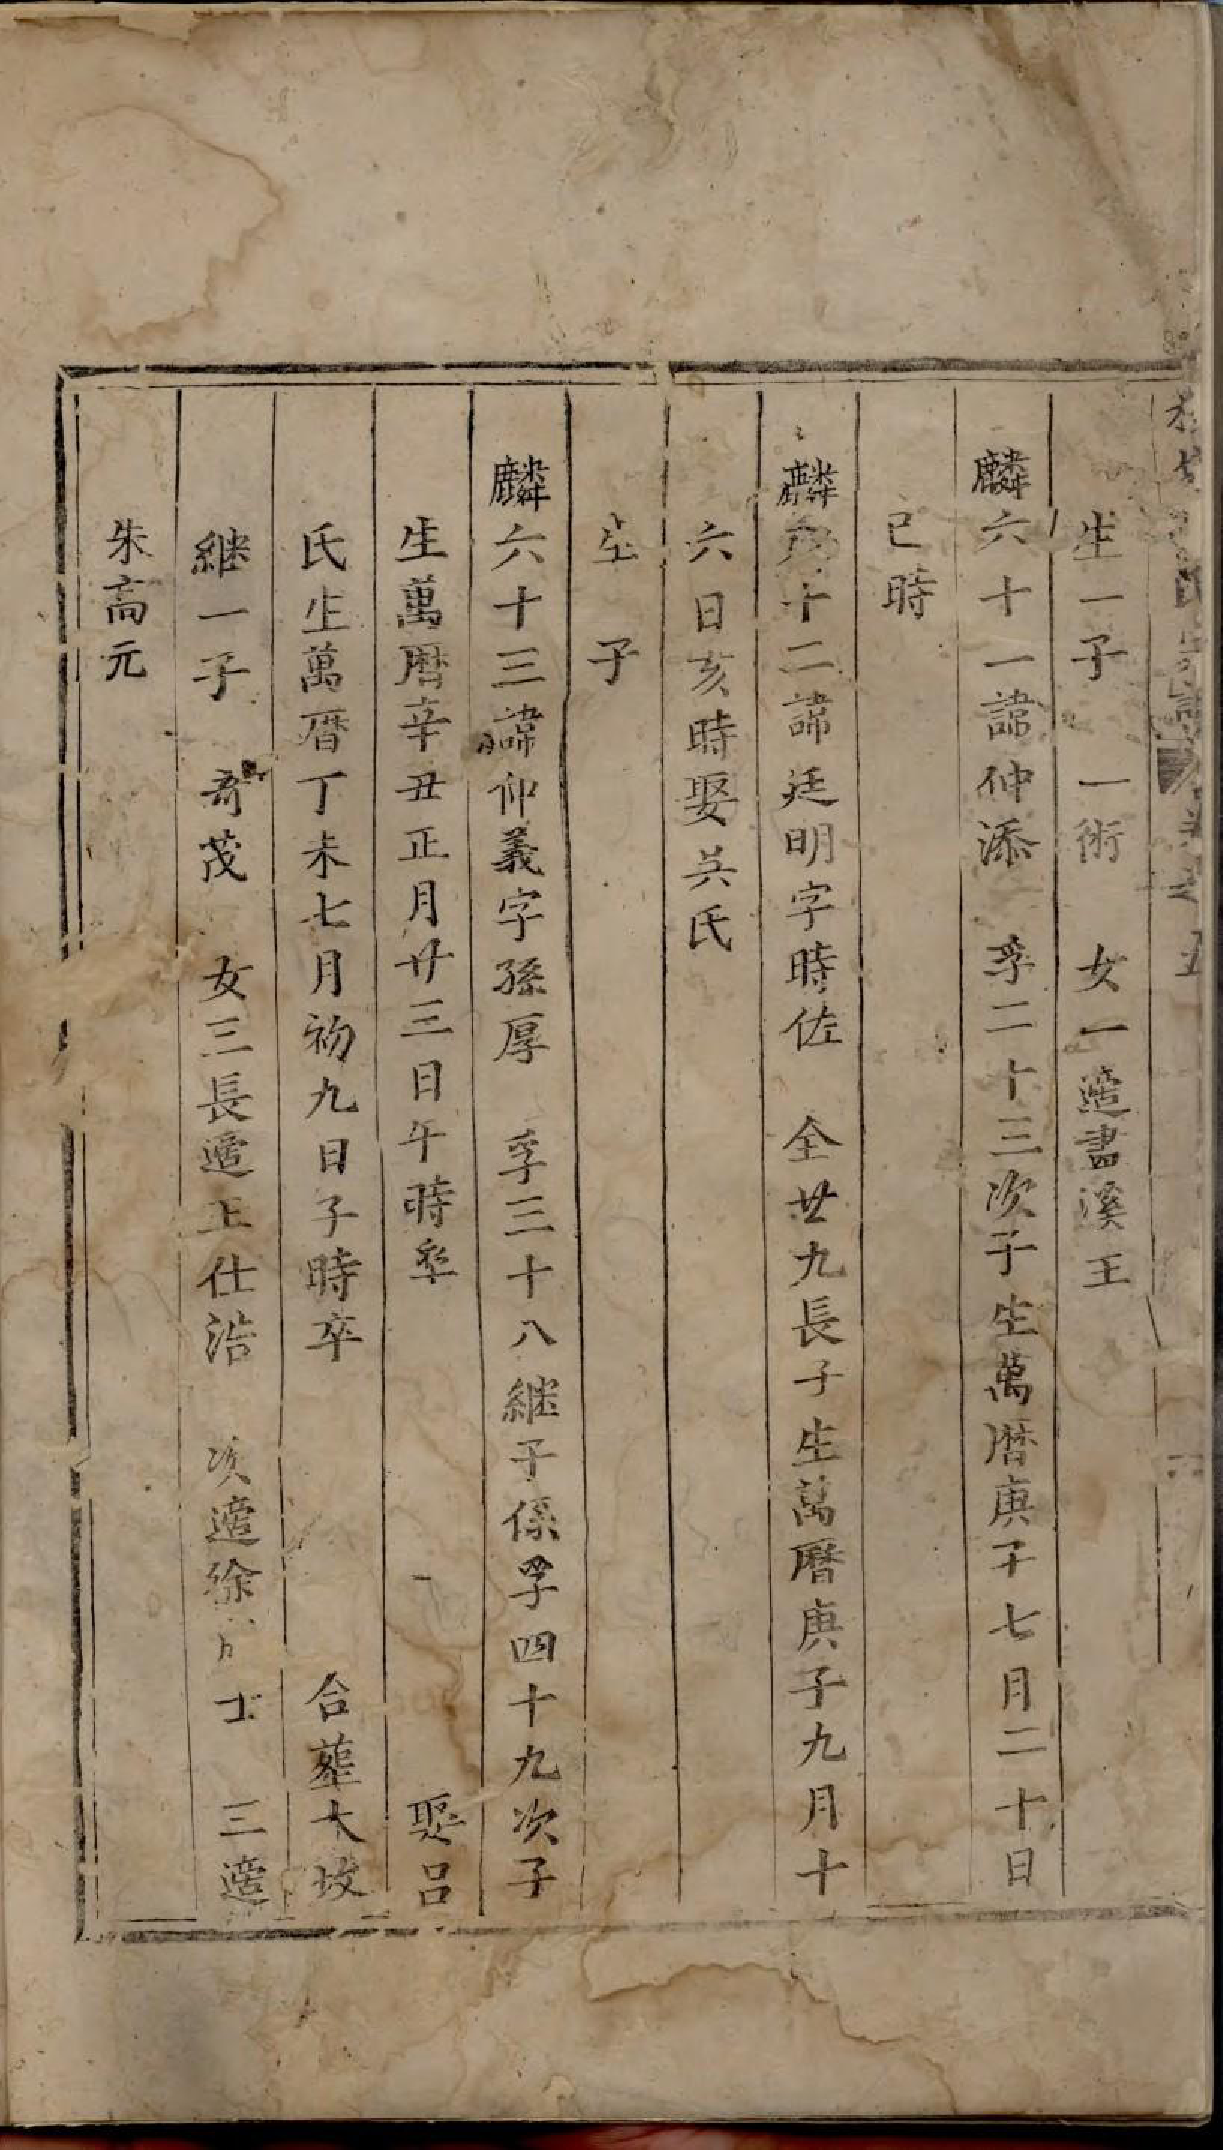 生一子 一術 女一適畫溪王
麟六十一諱仲添 孚二十三次子生萬曆庚子七月二十日
巳時
麟六十二諱廷明字時佐 全廿九長子生萬曆庚子九月十
六日亥時娶吴氏
生 子
麟六十三諱仰義字孫厚 孚三十八継子係孚四十九次子
生萬曆辛丑正月廿三日午時卒 娶吕
氏生萬曆丁未七月初九日子時卒 合葬大坟
継一子 竒茂 女三長適王仕浩 次適徐 士 三適
朱高元